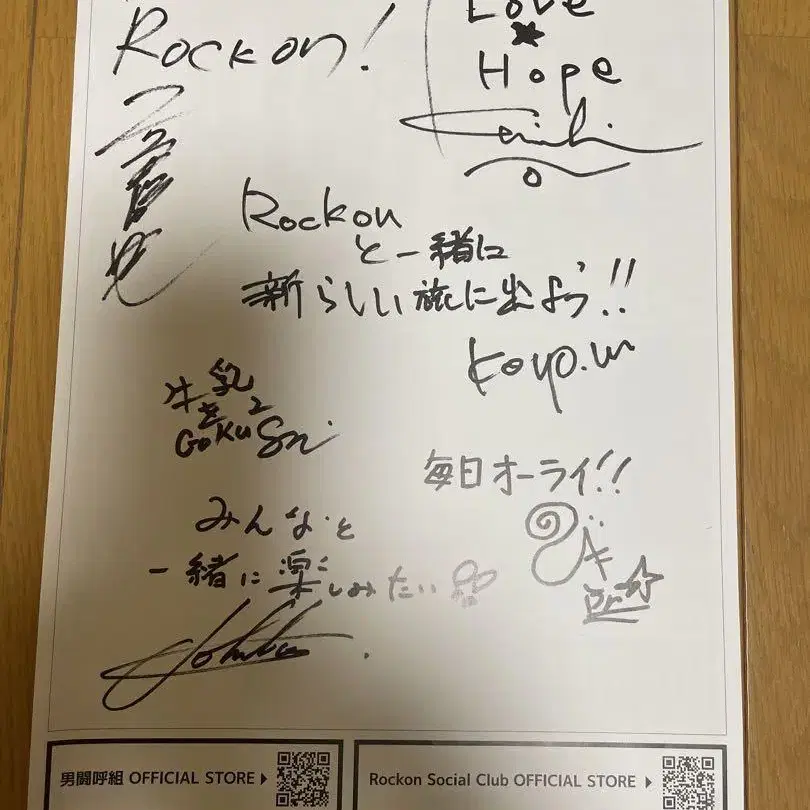 Rockon!
Love
★
Hope
Rockon
と一緒に
新らしい旅に出よう!!
Koyo.w
牛乳
GoKu
毎日オーライ!!
みんなと
一緒に楽しみたい
男闘呼組 OFFICIAL STORE▶
Rockon Social Club OFFICIAL STORE ▶